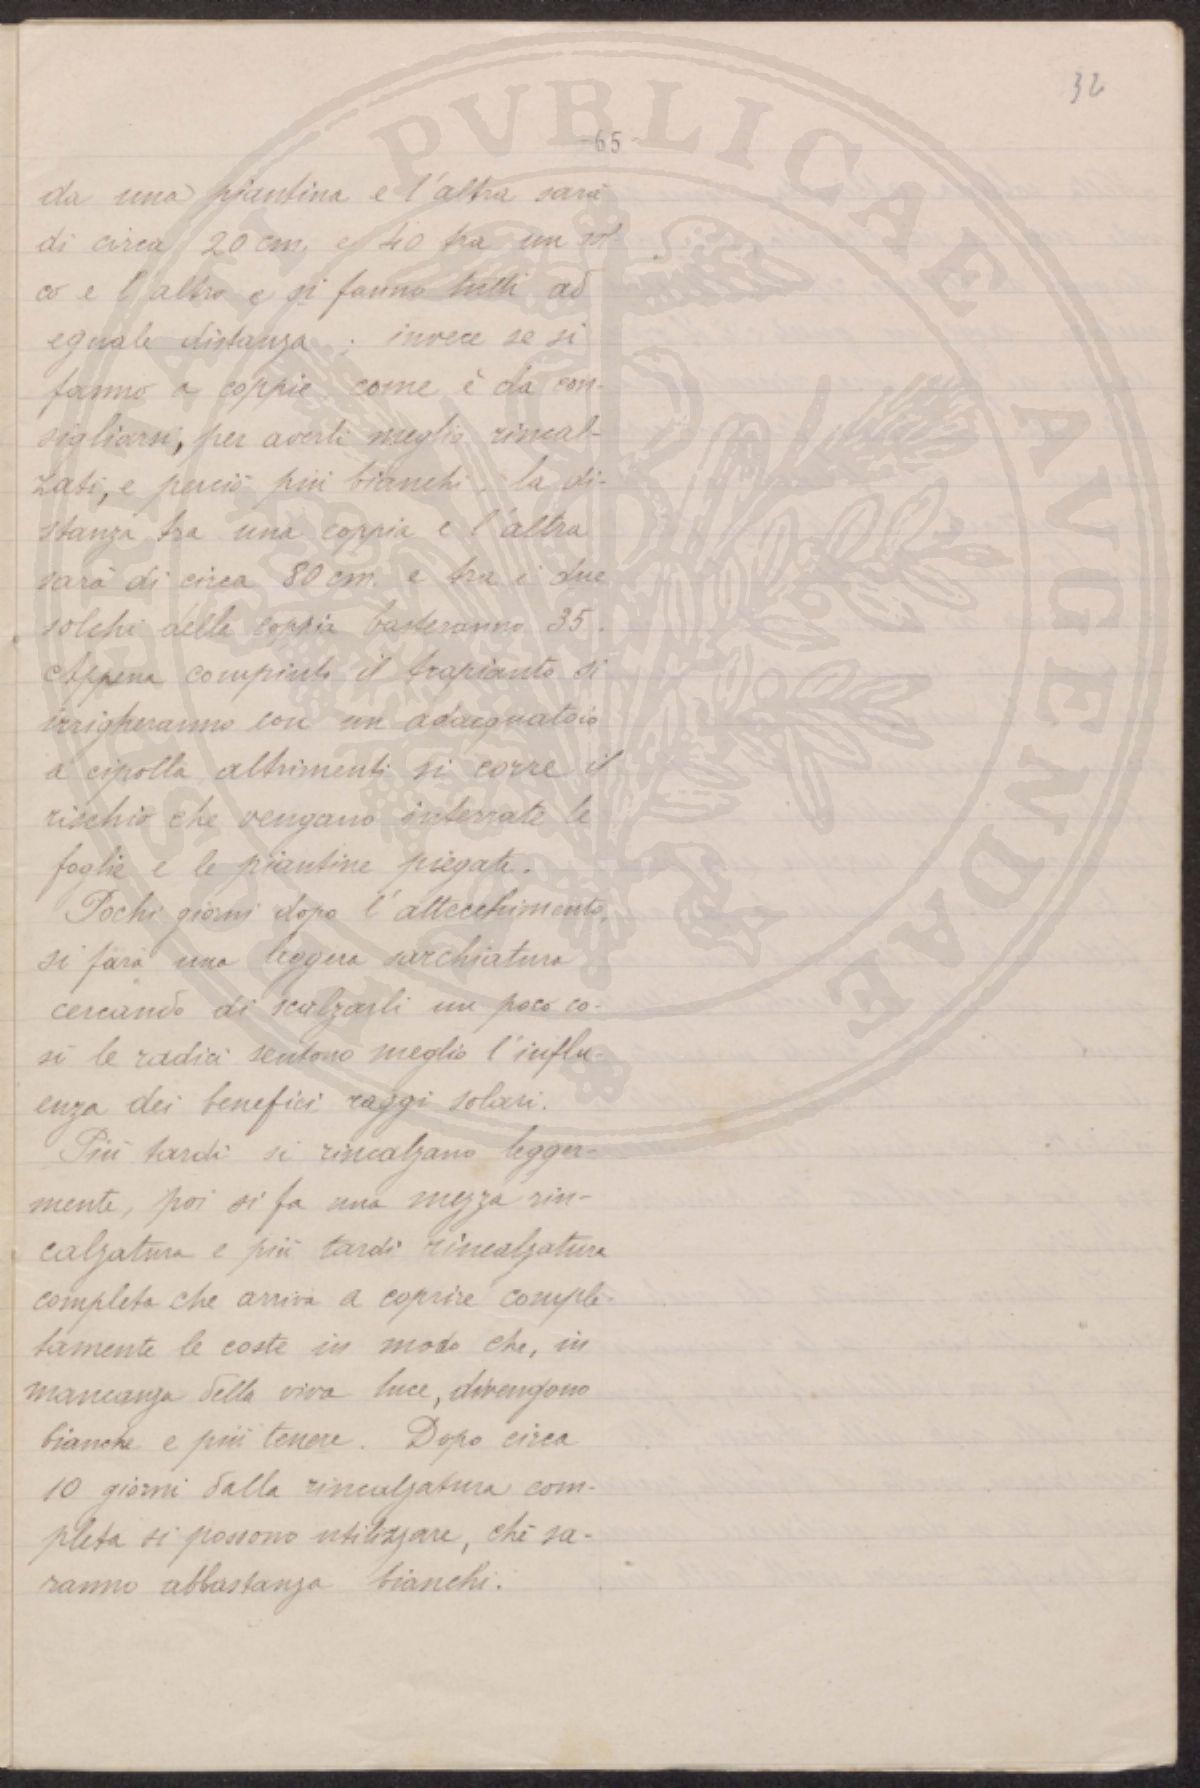 32
-65-
da una piantina e l'altra sarà
di circa 20 cm. e 40 tra un sol
co e l'altro e si fanno tutti ad
eguale distanza ; invece se si
fanno a coppie, come è da con-
sigliarsi, per averli meglio rincal-
zati, e perciò più bianchi, la di-
stanza tra una coppia e l'altra
sarà di circa 80 cm. e tra i due
solchi delle coppie basteranno 35.
Appena compiuto il trapianto si
irrigheranno con un adacquatoio
a cipolla altrimenti si corre il
rischio che vengano interrate le
foglie e le piantine piegate.
Pochi giorni dopo l'attecchimento,
si farà una leggera sarchiatura
cercando di scalzarli un poco co-
sì le radici sentono meglio l'influ-
enza dei benefici raggi solari.
Più tardi si rincalzano legger-
mente, poi si fa una mezza rin-
calzatura e più tardi rincalzatura
completa che arriva a coprire comple-
tamente le coste in modo che, in
mancanza della viva luce, divengono
bianche e più tenere. Dopo circa
10 giorni dalla rincalzatura com-
pleta si possono utilizzare, chè sa-
ranno abbastanza bianchi.
PVBLICAE AVGENDAE